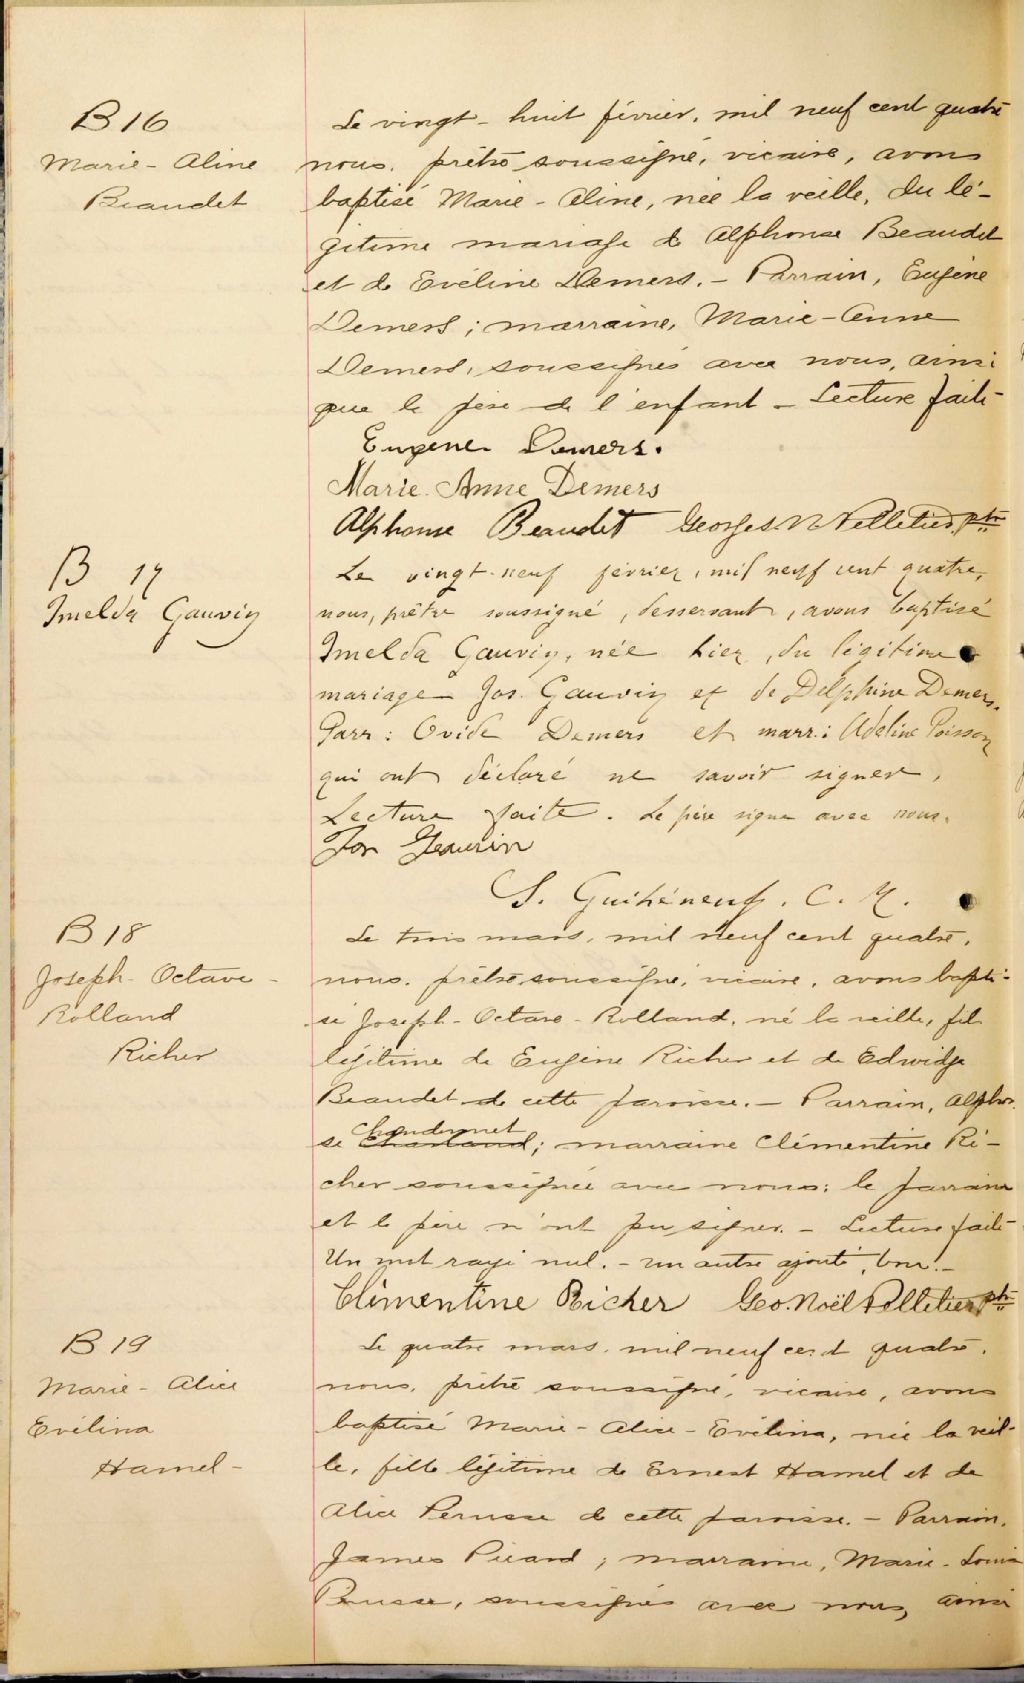 B 16
Marie-Aline
Beaudet
Le vingt-huit février, mil neuf cent quatre
nous, prêtre soussigné, vicaire, avons
baptisé Marie-Aline, née la veille, du lé-
gitime mariage de Alphonse Beaudet
et de Evéline Demers. - Parrain, Eugène
Demers; marraine, Marie-Anne
Demers, soussignés avec nous, ainsi
que le père de l'enfant - Lecture faite -
Eugene Demers.
Marie-Anne Demers
Alphonse Beaudet Georges N Pelletier, ptr
B 17
Imelda Gauvin
Le vingt-neuf février, mil neuf cent quatre,
nous, prêtre soussigné, desservant, avons baptisé
Imelda Gauvin, née hier, du légitime
mariage Jos. Gauvin et de Delphine Demers.
Parr: Ovide Demers et marr.: Adeline Poisson
qui ont déclaré ne savoir signer.
Lecture faite. Le père signe avec nous.
Jos Gauvin
S. Guihéneuf. C. M.
B 18
Joseph-Octave -
Rolland
Richer
Le trois mars, mil neuf cent quatre,
nous, prêtre soussigné, vicaire, avons bapti-
sé Joseph-Octave-Rolland, né la veille, fils
légitime de Eugène Richer et de Edwidge
Beaudet de cette paroisse. - Parrain, Alphon-
Chaudonnet
se Charland; marraine Clémentine Ri-
cher soussignée avec nous; le parrain
et le père n'ont pu signer. - Lecture faite -
Un mot rayé nul. - un autre ajouté, bon. -
Clémentine Richer Geo. Noël Pelletier, ptr
B 19
Marie-Alice
Evélina
Hamel -
Le quatre mars, mil neuf cent quatre,
nous, prêtre soussigné, vicaire, avons
baptisé Marie-Alice-Evélina, née la veil-
le, fille légitime de Ernest Hamel et de
Alice Perusse de cette paroisse. - Parrain,
James Picard; marraine, Marie-Louise
Perusse, soussignés avec nous, ainsi